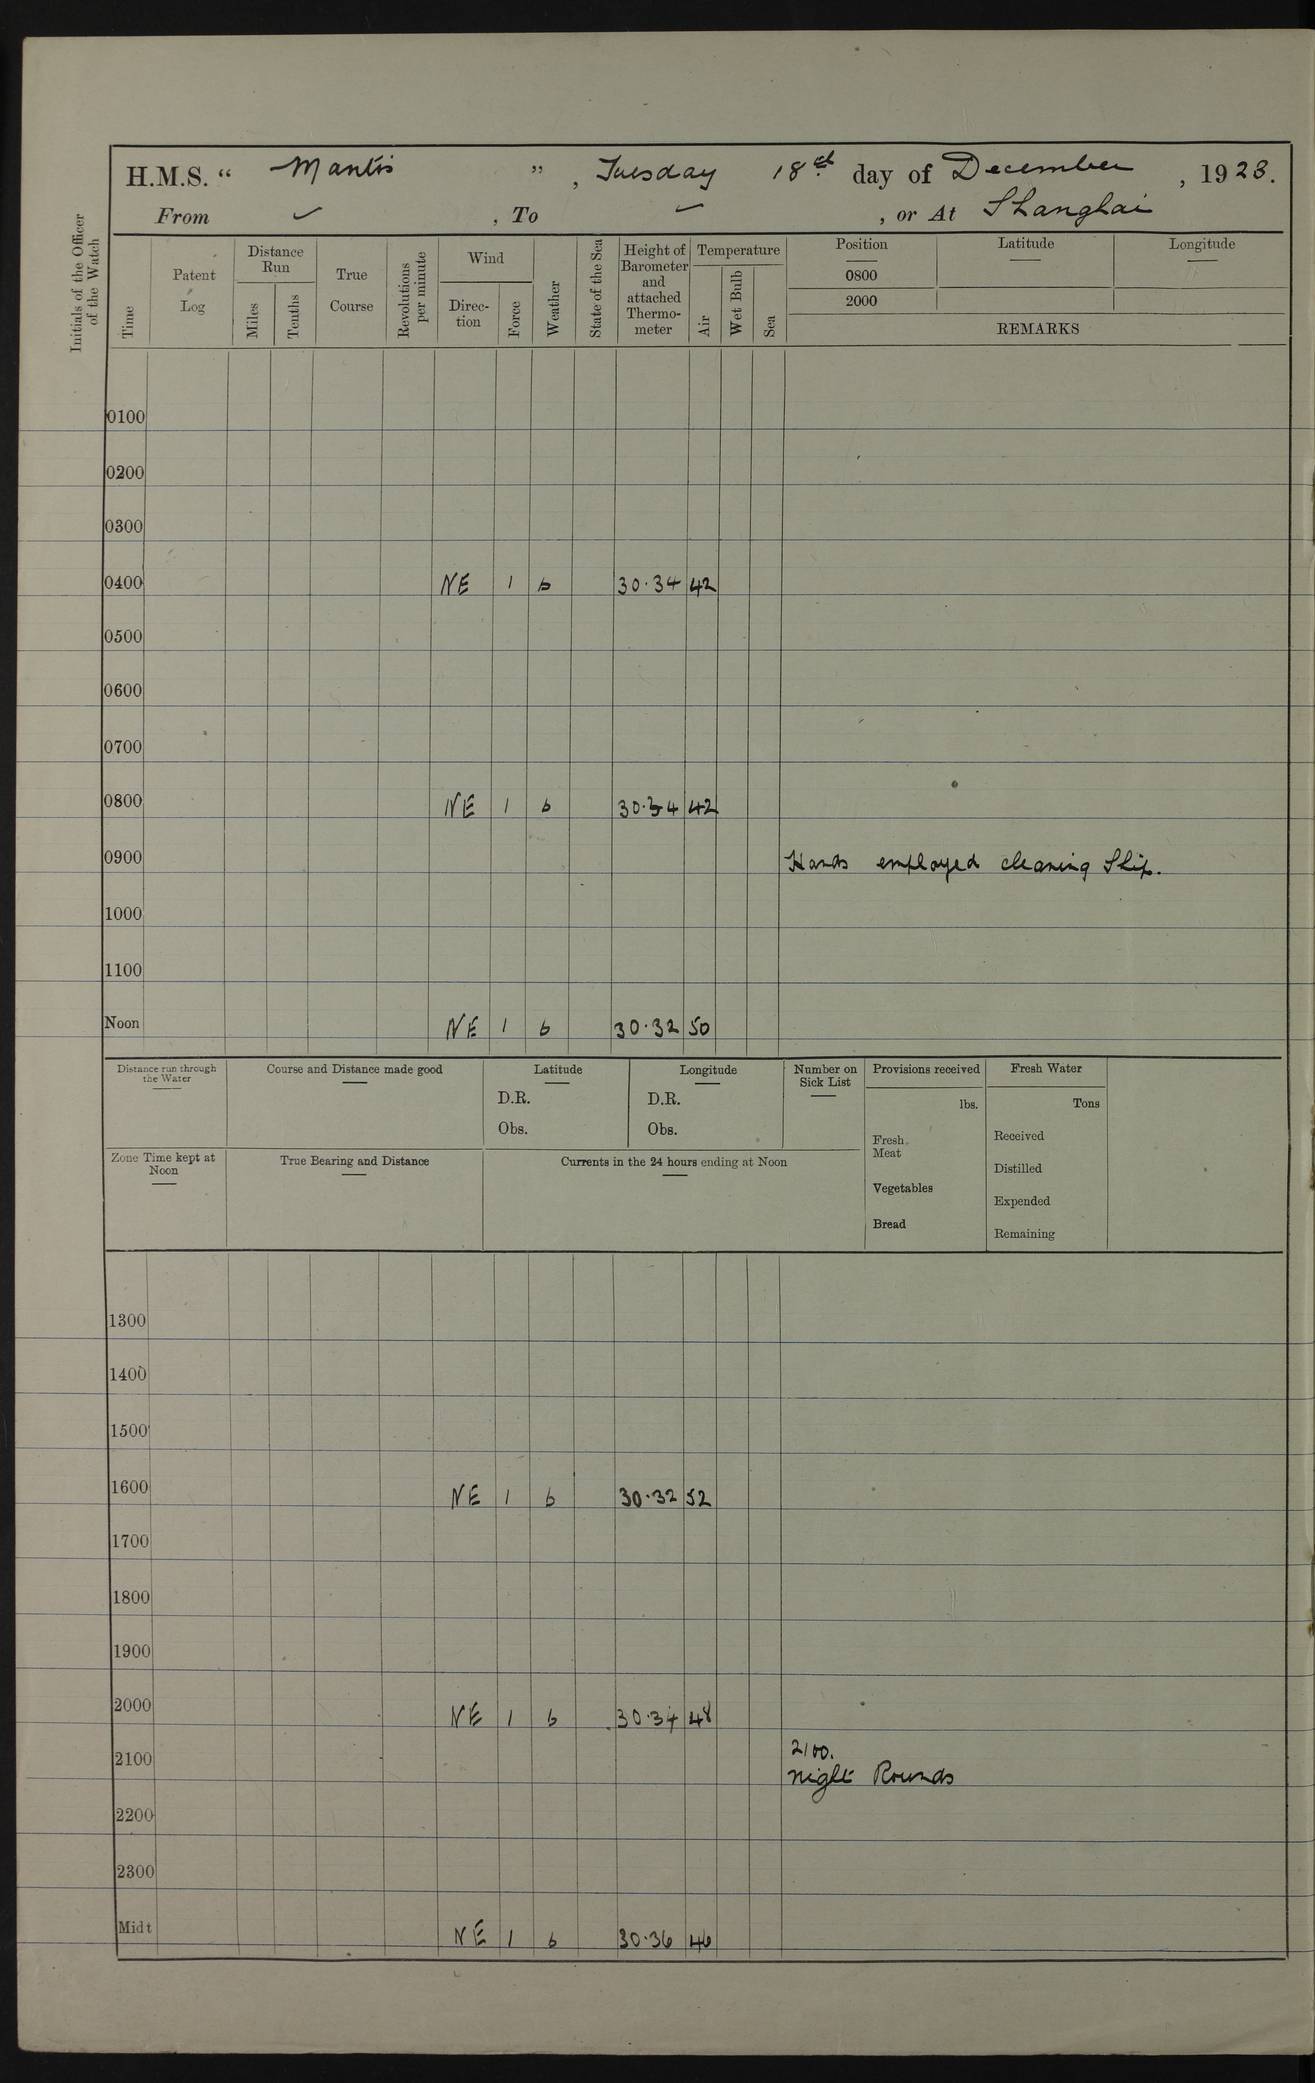 H.M.S. “ Mantis ” , Tuesday 18th day of December , 1923.
From ✓ , To ✓ , or At Shanghai
Initials of the Officer of the Watch
Time
Patent Log
Distance Run
Miles
Tenths
True Course
Revolutions per minute
Wind
Direc-tion
Force
Weather
State of the Sea
Height of Barometer and attached Thermo-meter
Temperature
Air
Wet Bulb
Sea
Position
Latitude
Longitude
0800
2000
REMARKS
0100
0200
0300
0400 NE 1 b 30·34 42
0500
0600
0700
0800 NE 1 b 30·34 42
0900 Hands employed cleaning Ship.
1000
1100
Noon NE 1 b 30·32 50
Distance run through the Water
Course and Distance made good
Latitude
D.R.
Obs.
Longitude
D.R.
Obs.
Number on Sick List
Provisions received
lbs.
Fresh Meat
Vegetables
Bread
Fresh Water
Tons
Received
Distilled
Expended
Remaining
Zone Time kept at Noon
True Bearing and Distance
Currents in the 24 hours ending at Noon
1300
1400
1500
1600 NE 1 b 30·32 52
1700
1800
1900
2000 NE 1 b 30·34 48
2100.
2100 Night Rounds
2200
2300
Midt NE 1 b 30·36 46